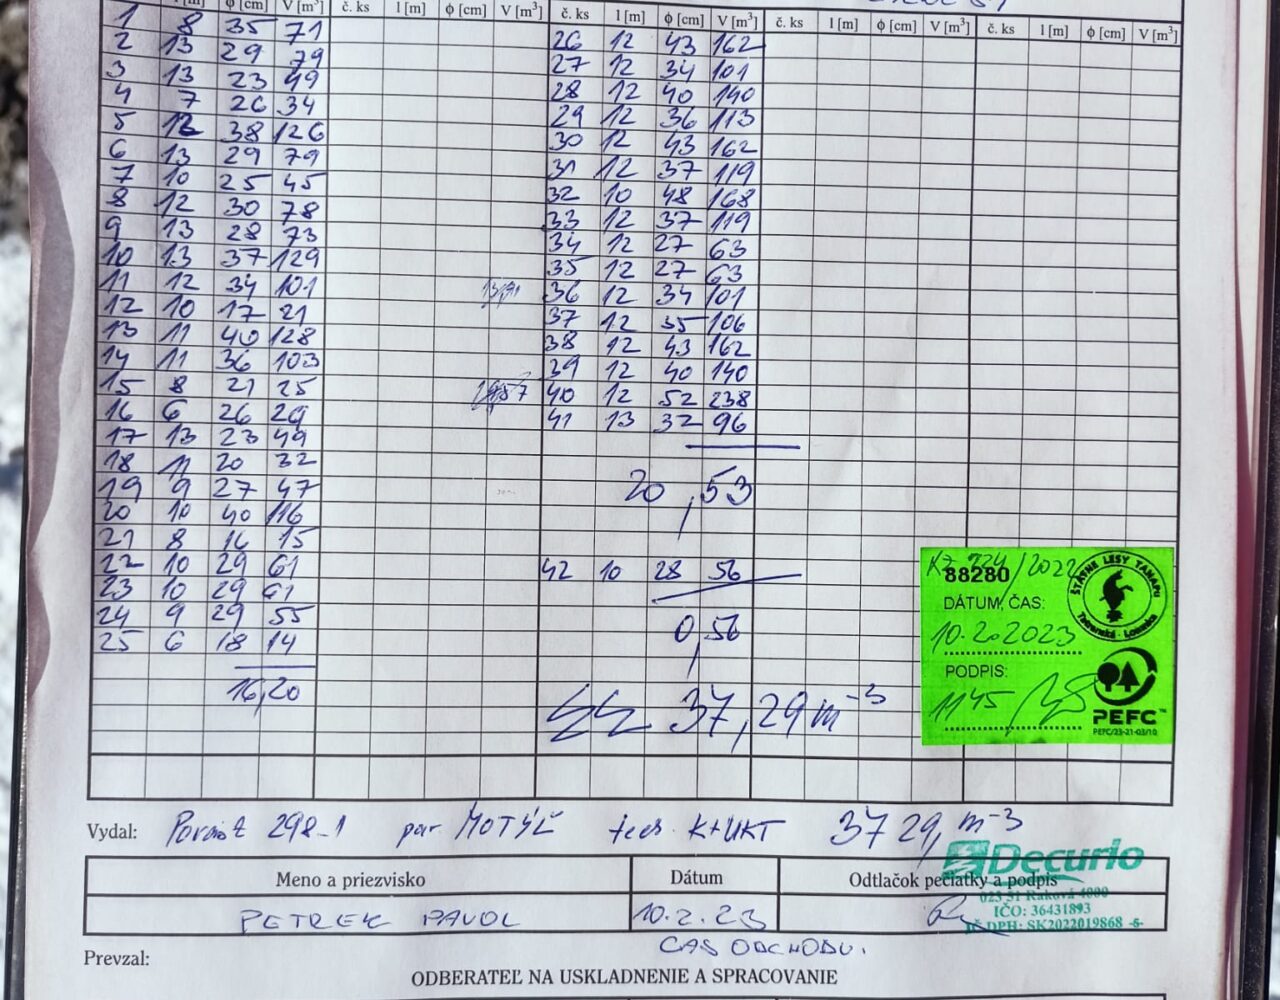 l [m] ϕ [cm] V [m³] č. ks l [m] ϕ [cm] V [m³] č. ks l [m] ϕ [cm] V [m³] č. ks l [m] ϕ [cm] V [m³] č. ks l [m] ϕ [cm] V [m³]
1 8 35 71
2 13 29 79 26 12 43 162
3 13 23 49 27 12 34 101
4 7 26 34 28 12 40 140
5 12 38 126 29 12 36 113
6 13 29 79 30 12 43 162
7 10 25 45 31 12 37 119
8 12 30 78 32 10 48 168
9 13 28 73 33 12 37 119
10 13 37 129 34 12 27 63
11 12 34 101 35 12 27 63
12 10 17 21 36 12 34 101
13 11 40 128 37 12 35 106
14 11 36 103 38 12 43 162
15 8 21 25 39 12 40 140
16 6 26 29 40 12 52 238
17 13 23 49 41 13 32 96
18 11 20 32
19 9 27 47 20,53
20 10 40 116
21 8 16 15
22 10 29 61 42 10 28 56
23 10 29 61
24 9 29 55 0,56
25 6 18 14
16,20 37,29 m-3
88280 /2022
DÁTUM, ČAS:
10.2.2023
PODPIS:
1145
ŠTÁTNE LESY TANAPU
Tatranská Lomnica
PEFC™
PEFC/23-21-03/10
Vydal: Porast 298-1 par. MOTÝĽ tech. K+UKT 37 29, m-3
Decurio
Meno a priezvisko Dátum Odtlačok pečiatky a podpis
023 51 Raková 4000
PETREK PAVOL 10.2.23
IČO: 36431893
IČ DPH: SK2022019868 -5-
ČAS ODCHODU.
Prevzal:
ODBERATEĽ NA USKLADNENIE A SPRACOVANIE